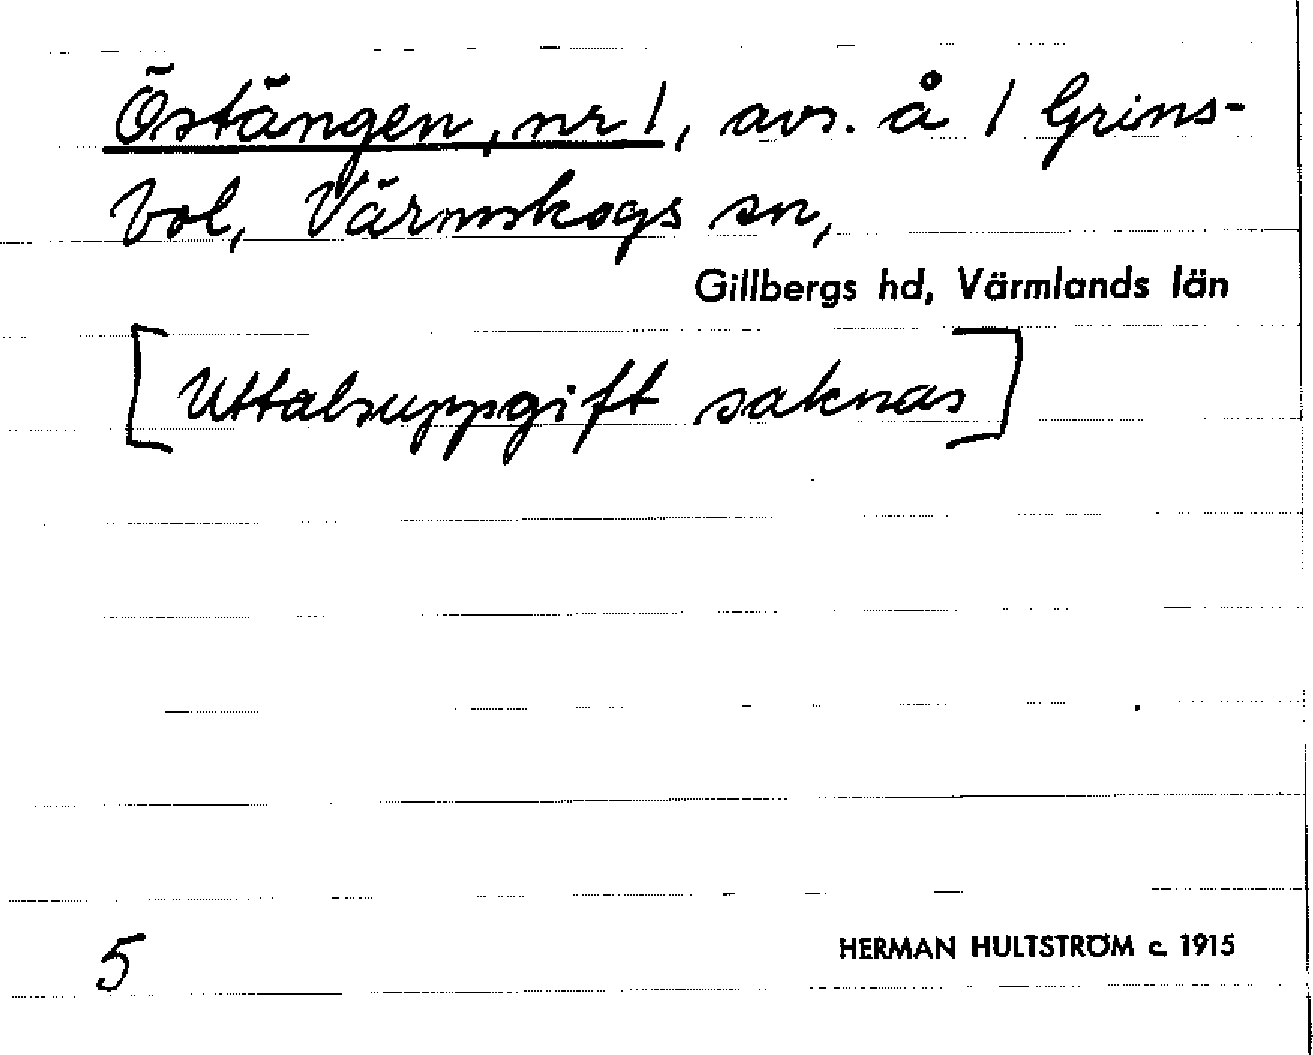 Östängen, nr 1, avs. å 1 Grins-
bol, Värmskogs sn,
Gillbergs hd, Värmlands län
[Uttalsuppgift saknas]
5
HERMAN HULTSTRÖM c. 1915